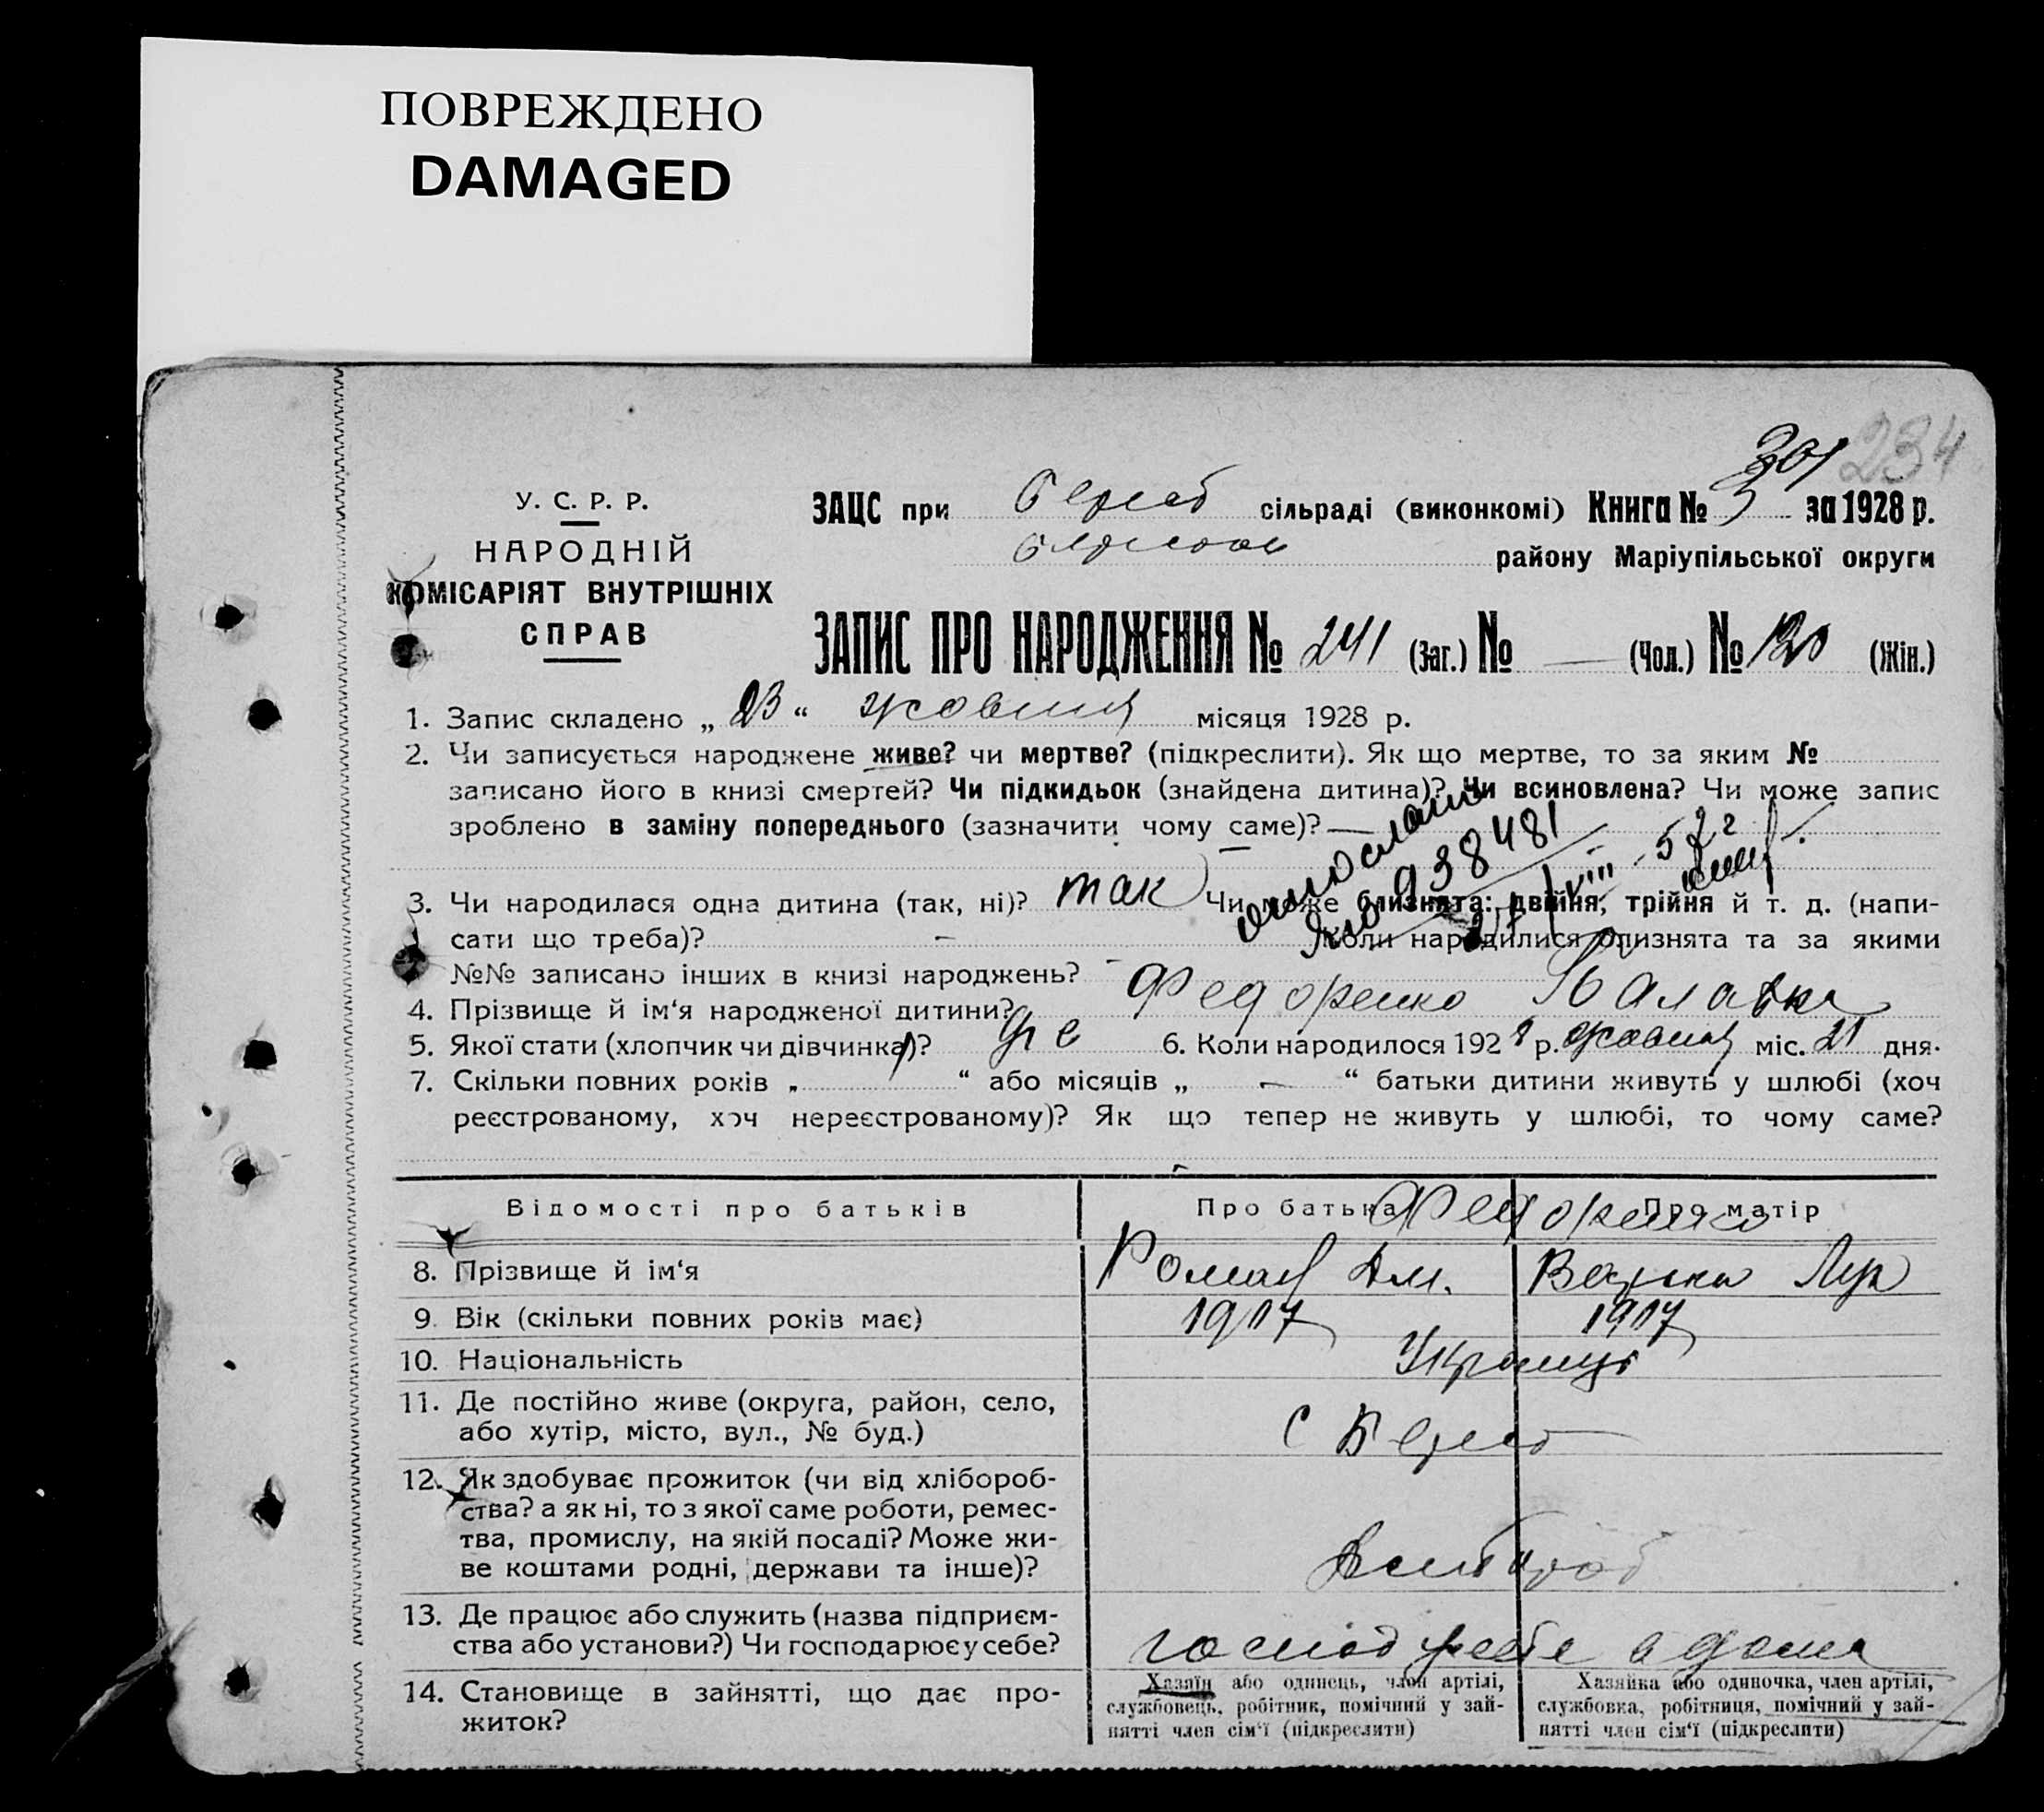 ПОВРЕЖДЕНО
DAMAGED
234
301
У. С. Р. Р.
НАРОДНІЙ
КОМІСАРІЯТ ВНУТРІШНІХ
СПРАВ
ЗАЦС при сільраді (виконкомі) Книга № 3 за 1928 р.
району Маріупільської округи
ЗАПИС ПРО НАРОДЖЕННЯ № 241 (Заг.) № — (Чол.) № 120 (Жін.)
1. Запис складено „ 23 “ жовтня місяця 1928 р.
2. Чи записується народжене живе? чи мертве? (підкреслити). Як що мертве, то за яким №
записано його в книзі смертей? Чи підкидьок (знайдена дитина)? Чи всиновлена? Чи може запис
зроблено в заміну попереднього (зазначити чому саме)? —
938481
VIII 57 г
3. Чи народилася одна дитина (так, ні)? так Чи може близнята: двійня, трійня й т. д. (напи-
сати що треба)? – Коли народилися близнята та за якими
№№ записано інших в книзі народжень? -
4. Прізвище й ім‘я народженої дитини? Федоренко Палажка
5. Якої статі (хлопчик чи дівчинка)? 6. Коли народилося 1928 р. жовтня міс. 21 дня.
7. Скільки повних років „ “ або місяців „ — “ батьки дитини живуть у шлюбі (хоч
реєстрованому, хоч нереєстрованому)? Як що тепер не живуть у шлюбі, то чому саме?
Відомості про батьків Про батька Про матір
Федоренко
8. Прізвище й ім‘я Роман Дм. Варька Лук
9. Вік (скільки повних років має) 1907 1907
10. Національність Українці
11. Де постійно живе (округа, район, село,
або хутір, місто, вул., № буд.) С Берест
12. Як здобуває прожиток (чи від хлібороб-
ства? а як ні, то з якої саме роботи, ремес-
тва, промислу, на якій посаді? Може жи-
ве коштами родні, держави та інше)?
13. Де працює або служить (назва підприєм-
ства або установи?) Чи господарює у себе? господ у себе в дома
14. Становище в зайнятті, що дає про-
житок?
Хазяїн або одинець, член артілі,
службовець, робітник, помічний у зай-
нятті член сім‘ї (підкреслити)
Хазяйка або одиночка, член артілі,
службовка, робітниця, помічний у зай-
нятті член сім‘ї (підкреслити)